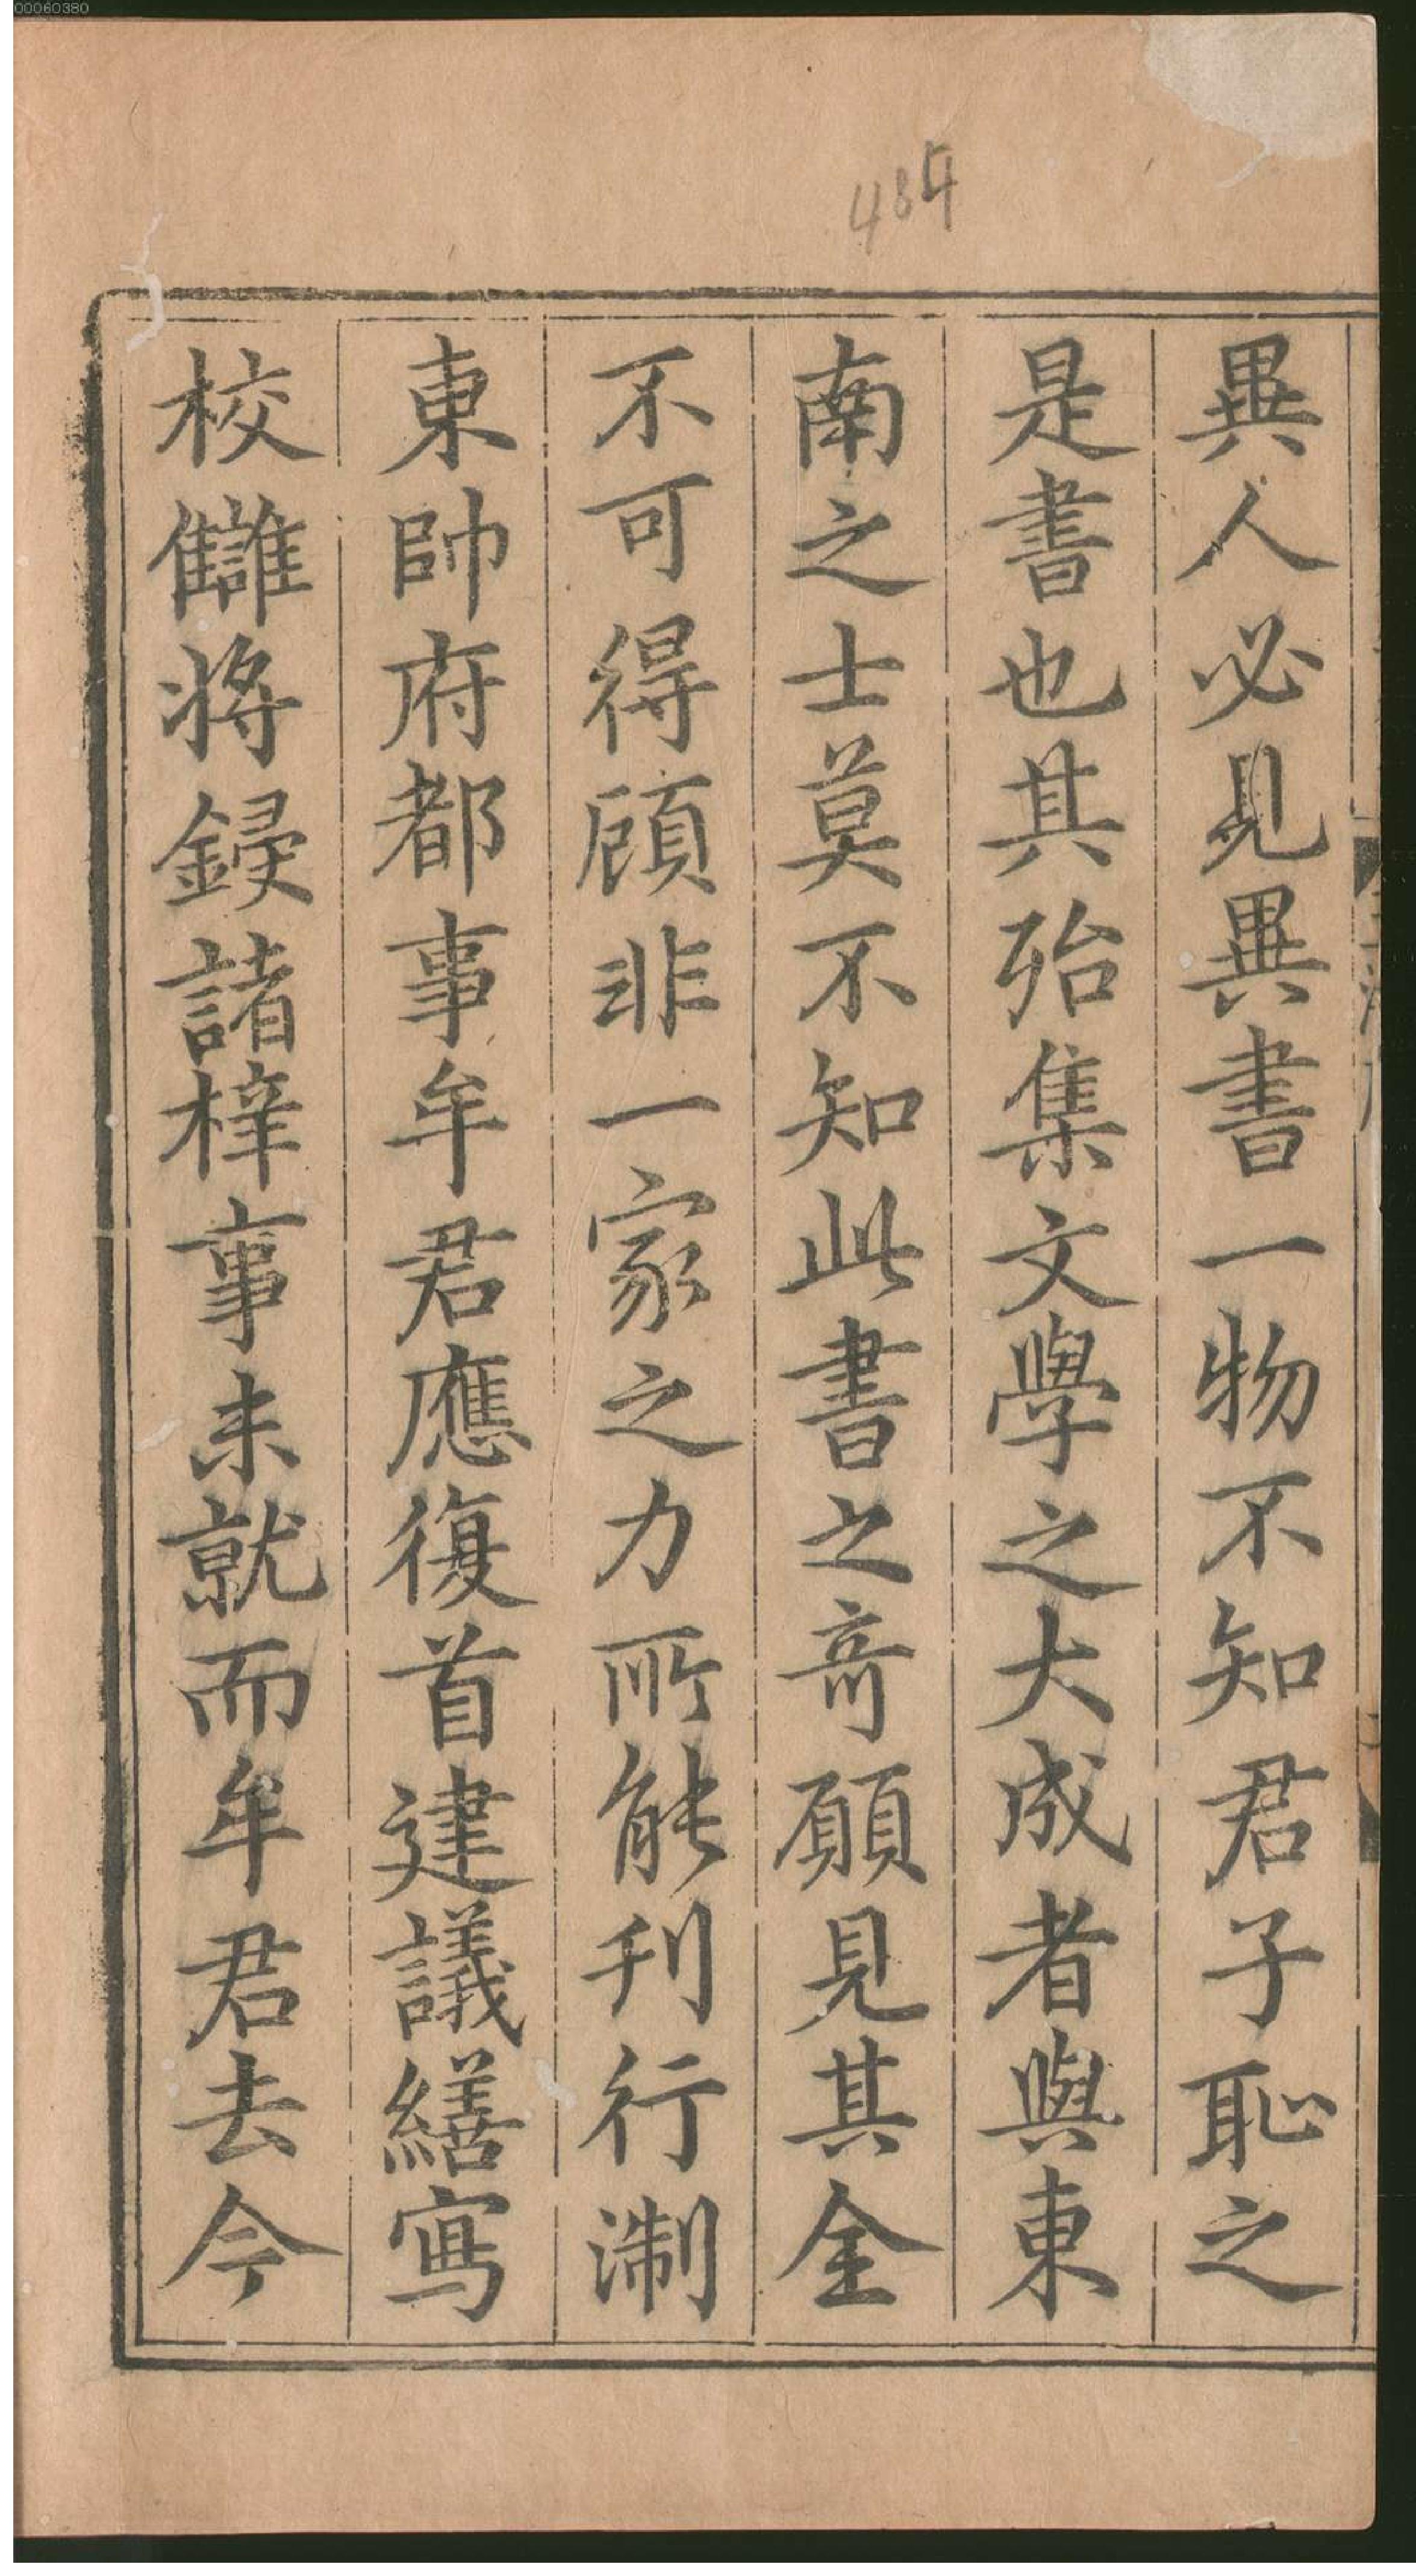 00060380
484
異人必見異書一物不知君子恥之
是書也其殆集文學之大成者與東
南之士莫不知此書之奇願見其全
不可得顧非一家之力所能刊行淛
東帥府都事牟君應復首建議繕寫
校讎將鋟諸梓事未就而牟君去今